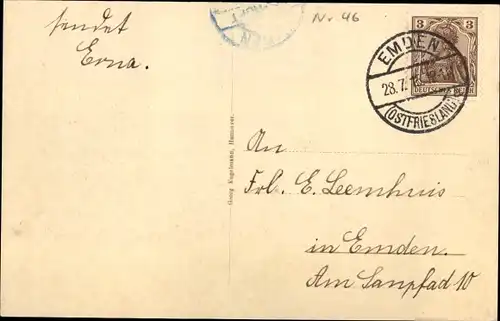 sendet
Erna.
N. 46
3
3
DEUTSCHES REICH
EMDEN
28.7.
(OSTFRIESLAND)
An
Frl. E. Leemhuis
in Emden.
Am Sanpfad 10
Georg Kugelmann, Hannover.